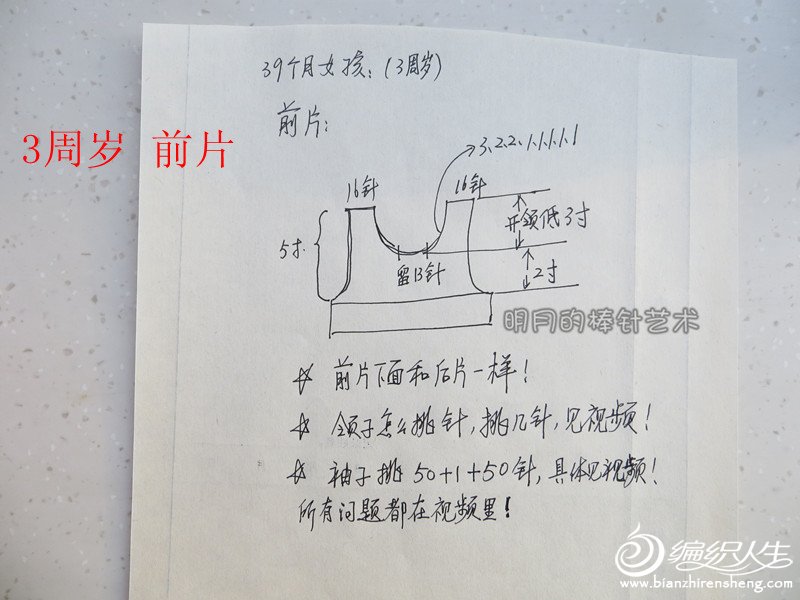 39个月女孩：（3周岁）
前片：
3周岁 前片
3、2、2、1、1、1、1、1
16针
16针
5寸
开领低3寸
留13针
2寸
明月的棒针艺术
☆ 前片下面和后片一样！
☆ 领子怎么挑针，挑几针，见视频！
☆ 袖子挑50+1+50针，具体见视频！
所有问题都在视频里！
编织人生
www.bianzhirensheng.com